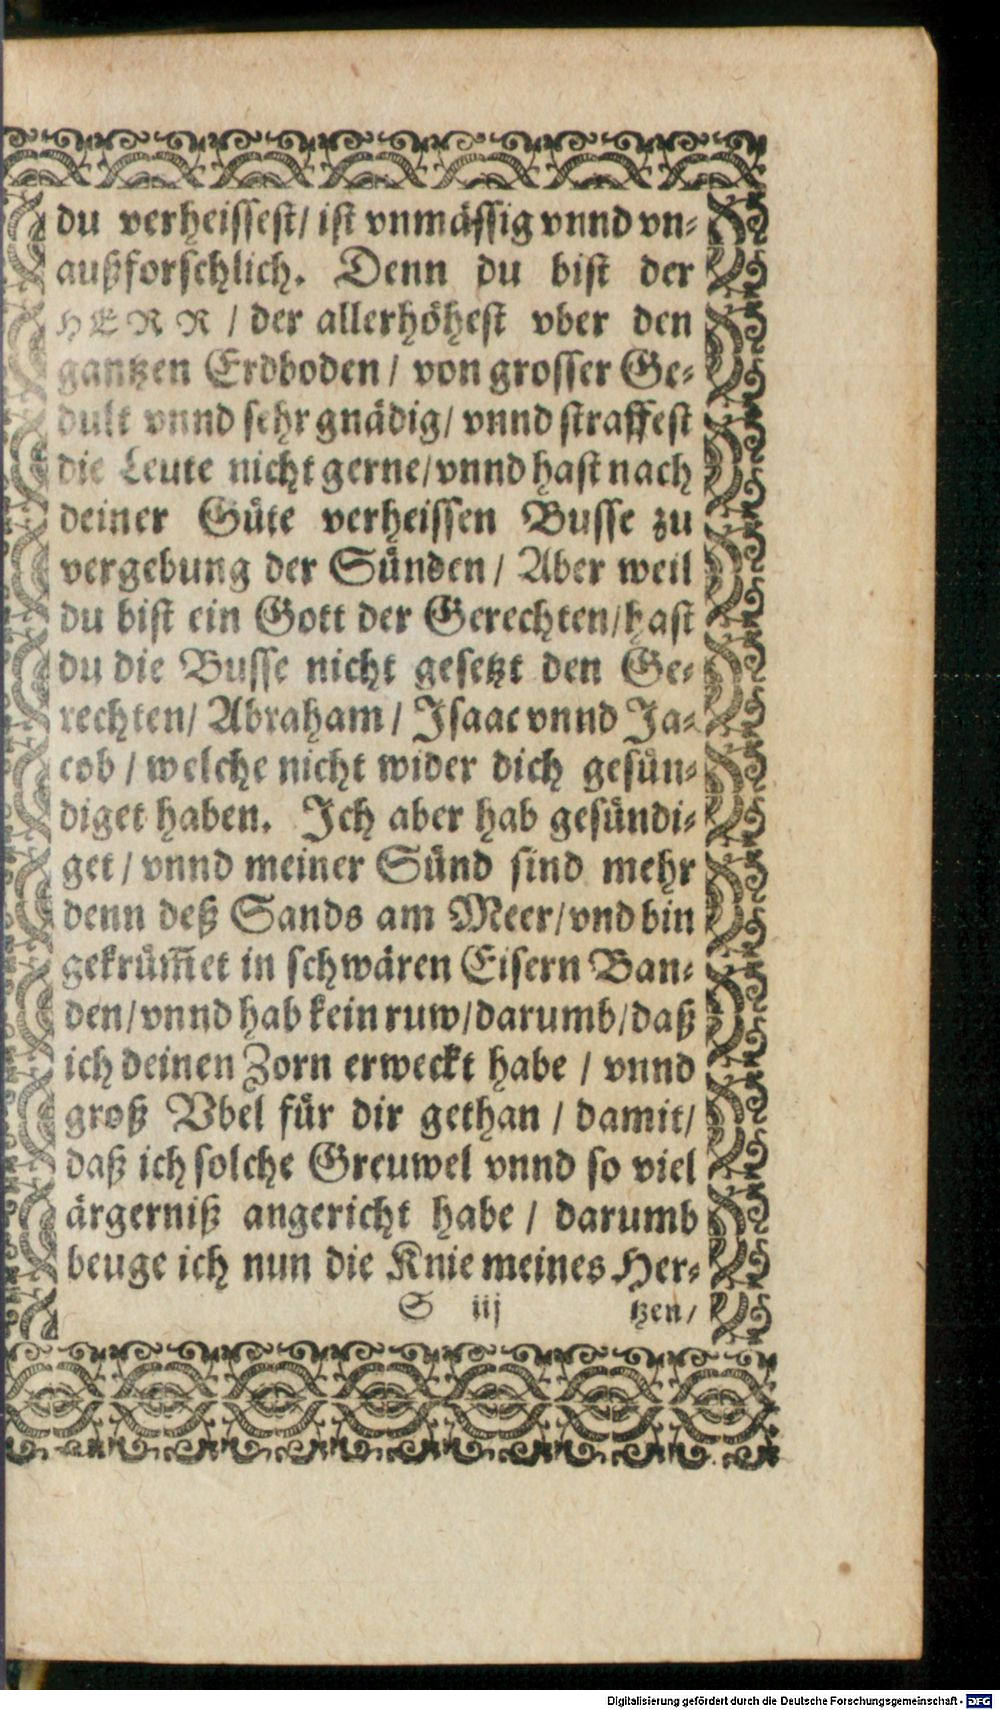 du verheissest/ ist vnmässig vnnd vn-
außforschlich. Denn du bist der
HERR / der allerhöhest vber den
gantzen Erdboden / von grosser Ge-
dult vnnd sehr gnädig/ vnnd straffest
die Leute nicht gerne/ vnnd hast nach
deiner Güte verheissen Busse zu
vergebung der Sünden / Aber weil
du bist ein Gott der Gerechten/ hast
du die Busse nicht gesetzt den Ge-
rechten/ Abraham / Isaac vnnd Ja-
cob / welche nicht wider dich gesün-
diget haben. Ich aber hab gesündi-
get / vnnd meiner Sünd sind mehr
denn deß Sands am Meer/ vnd bin
gekrüm̃et in schwären Eisern Ban-
den/ vnnd hab kein ruw/ darumb/ daß
ich deinen Zorn erweckt habe / vnnd
groß Vbel für dir gethan / damit/
daß ich solche Greuwel vnnd so viel
ärgerniß angericht habe / darumb
beuge ich nun die Knie meines Her-
S iij tzen/
Digitalisierung gefördert durch die Deutsche Forschungsgemeinschaft - DFG